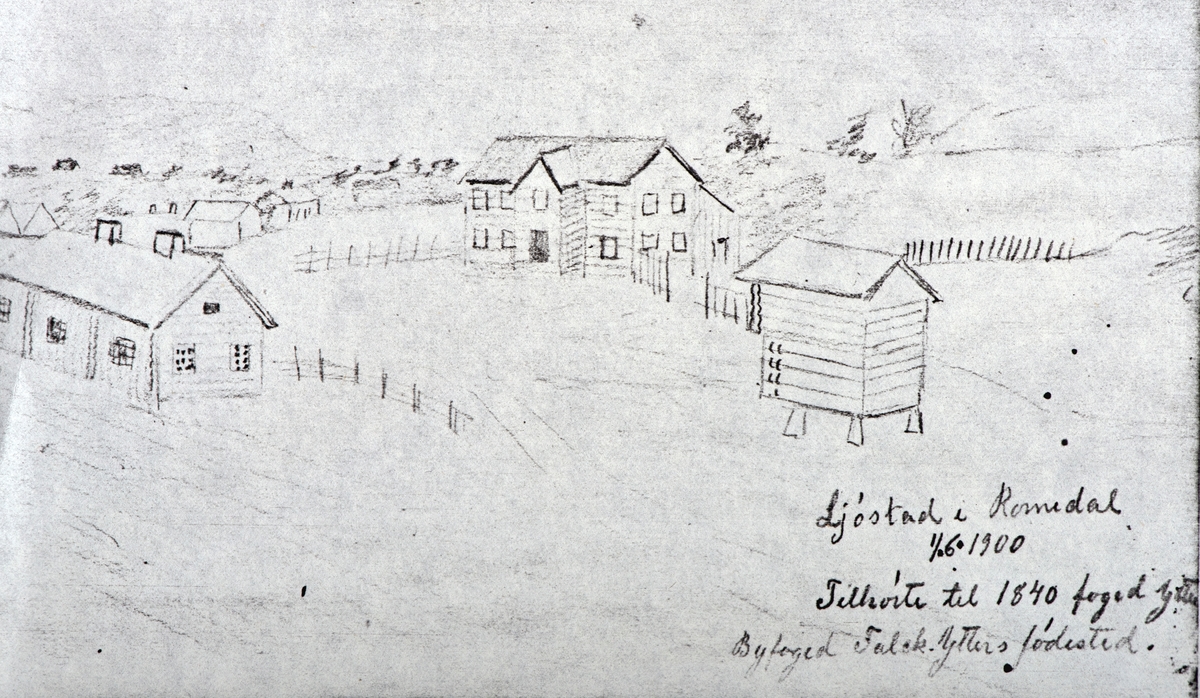 Ljóstad i Romedal
1/6 1900
Tilhórte til 1840 foged Ytte
Byfoged Falck-Ytters fódested.